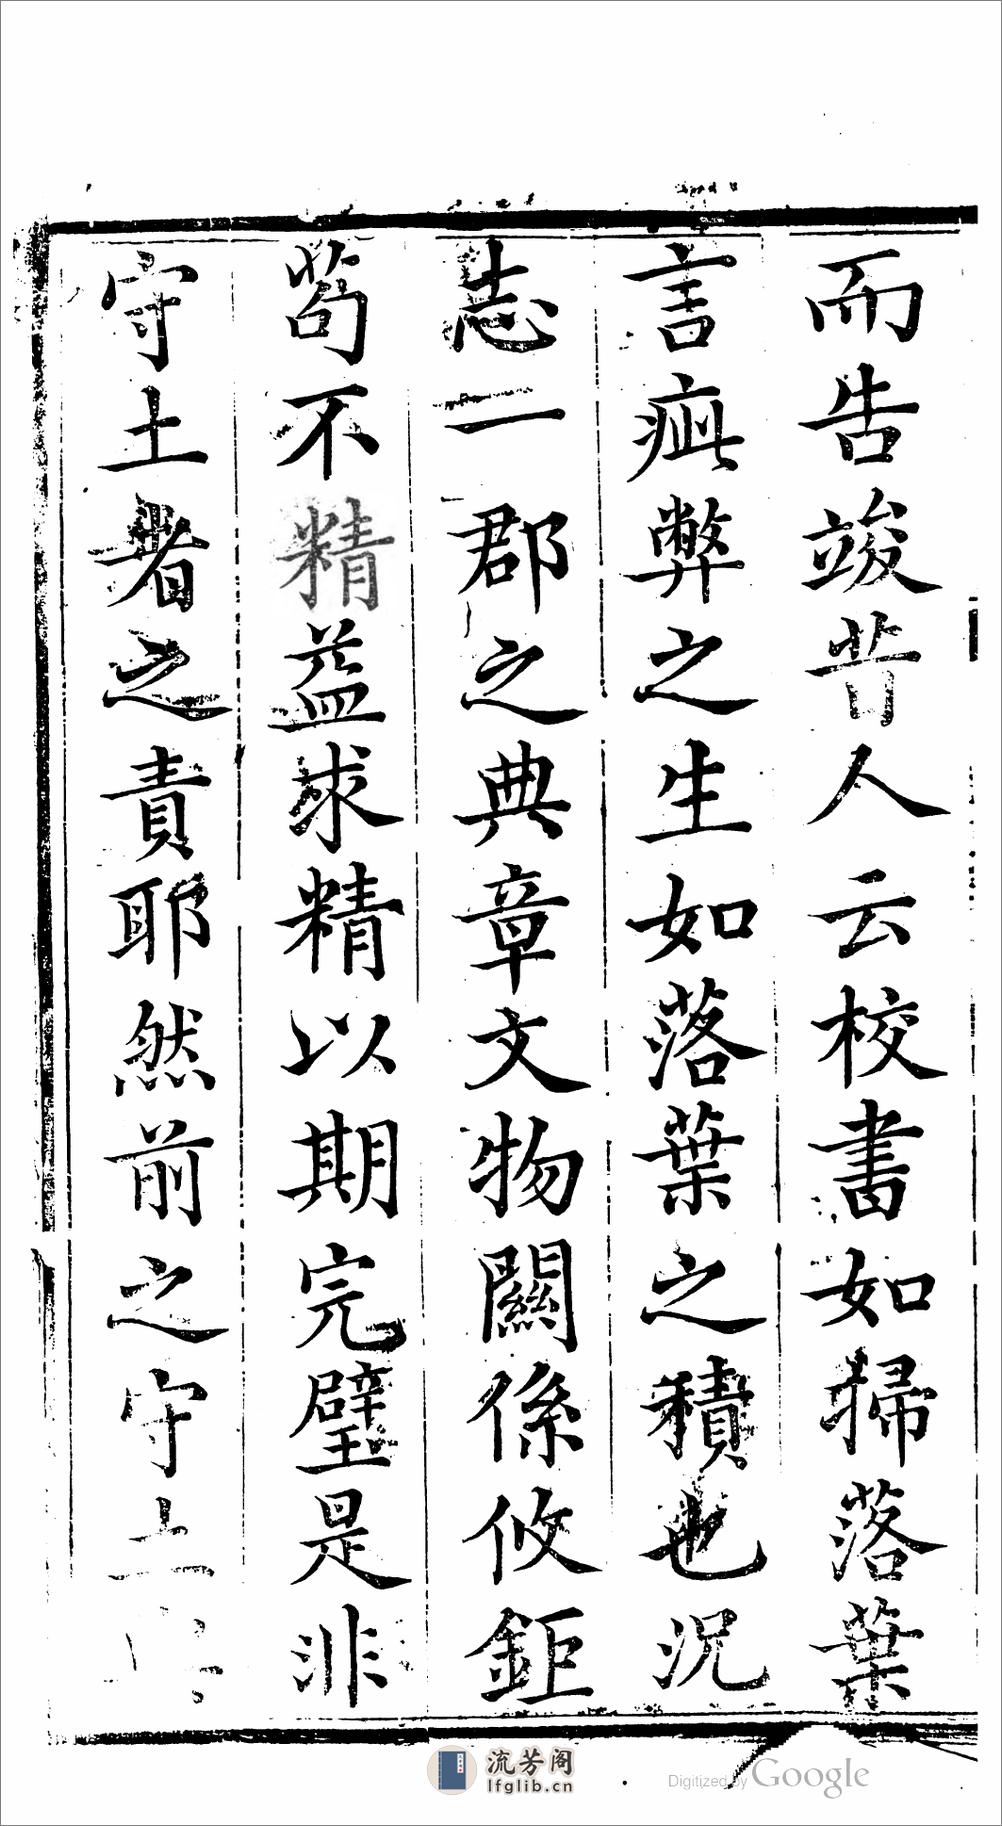 而告竣昔人云校書如掃落葉
言疵弊之生如落葉之積也況
志一郡之典章文物關係攸鉅
茍不精益求精以期完璧是非
守土者之責耶然前之守土
流芳阁
lfglib.cn
Digitized by Google